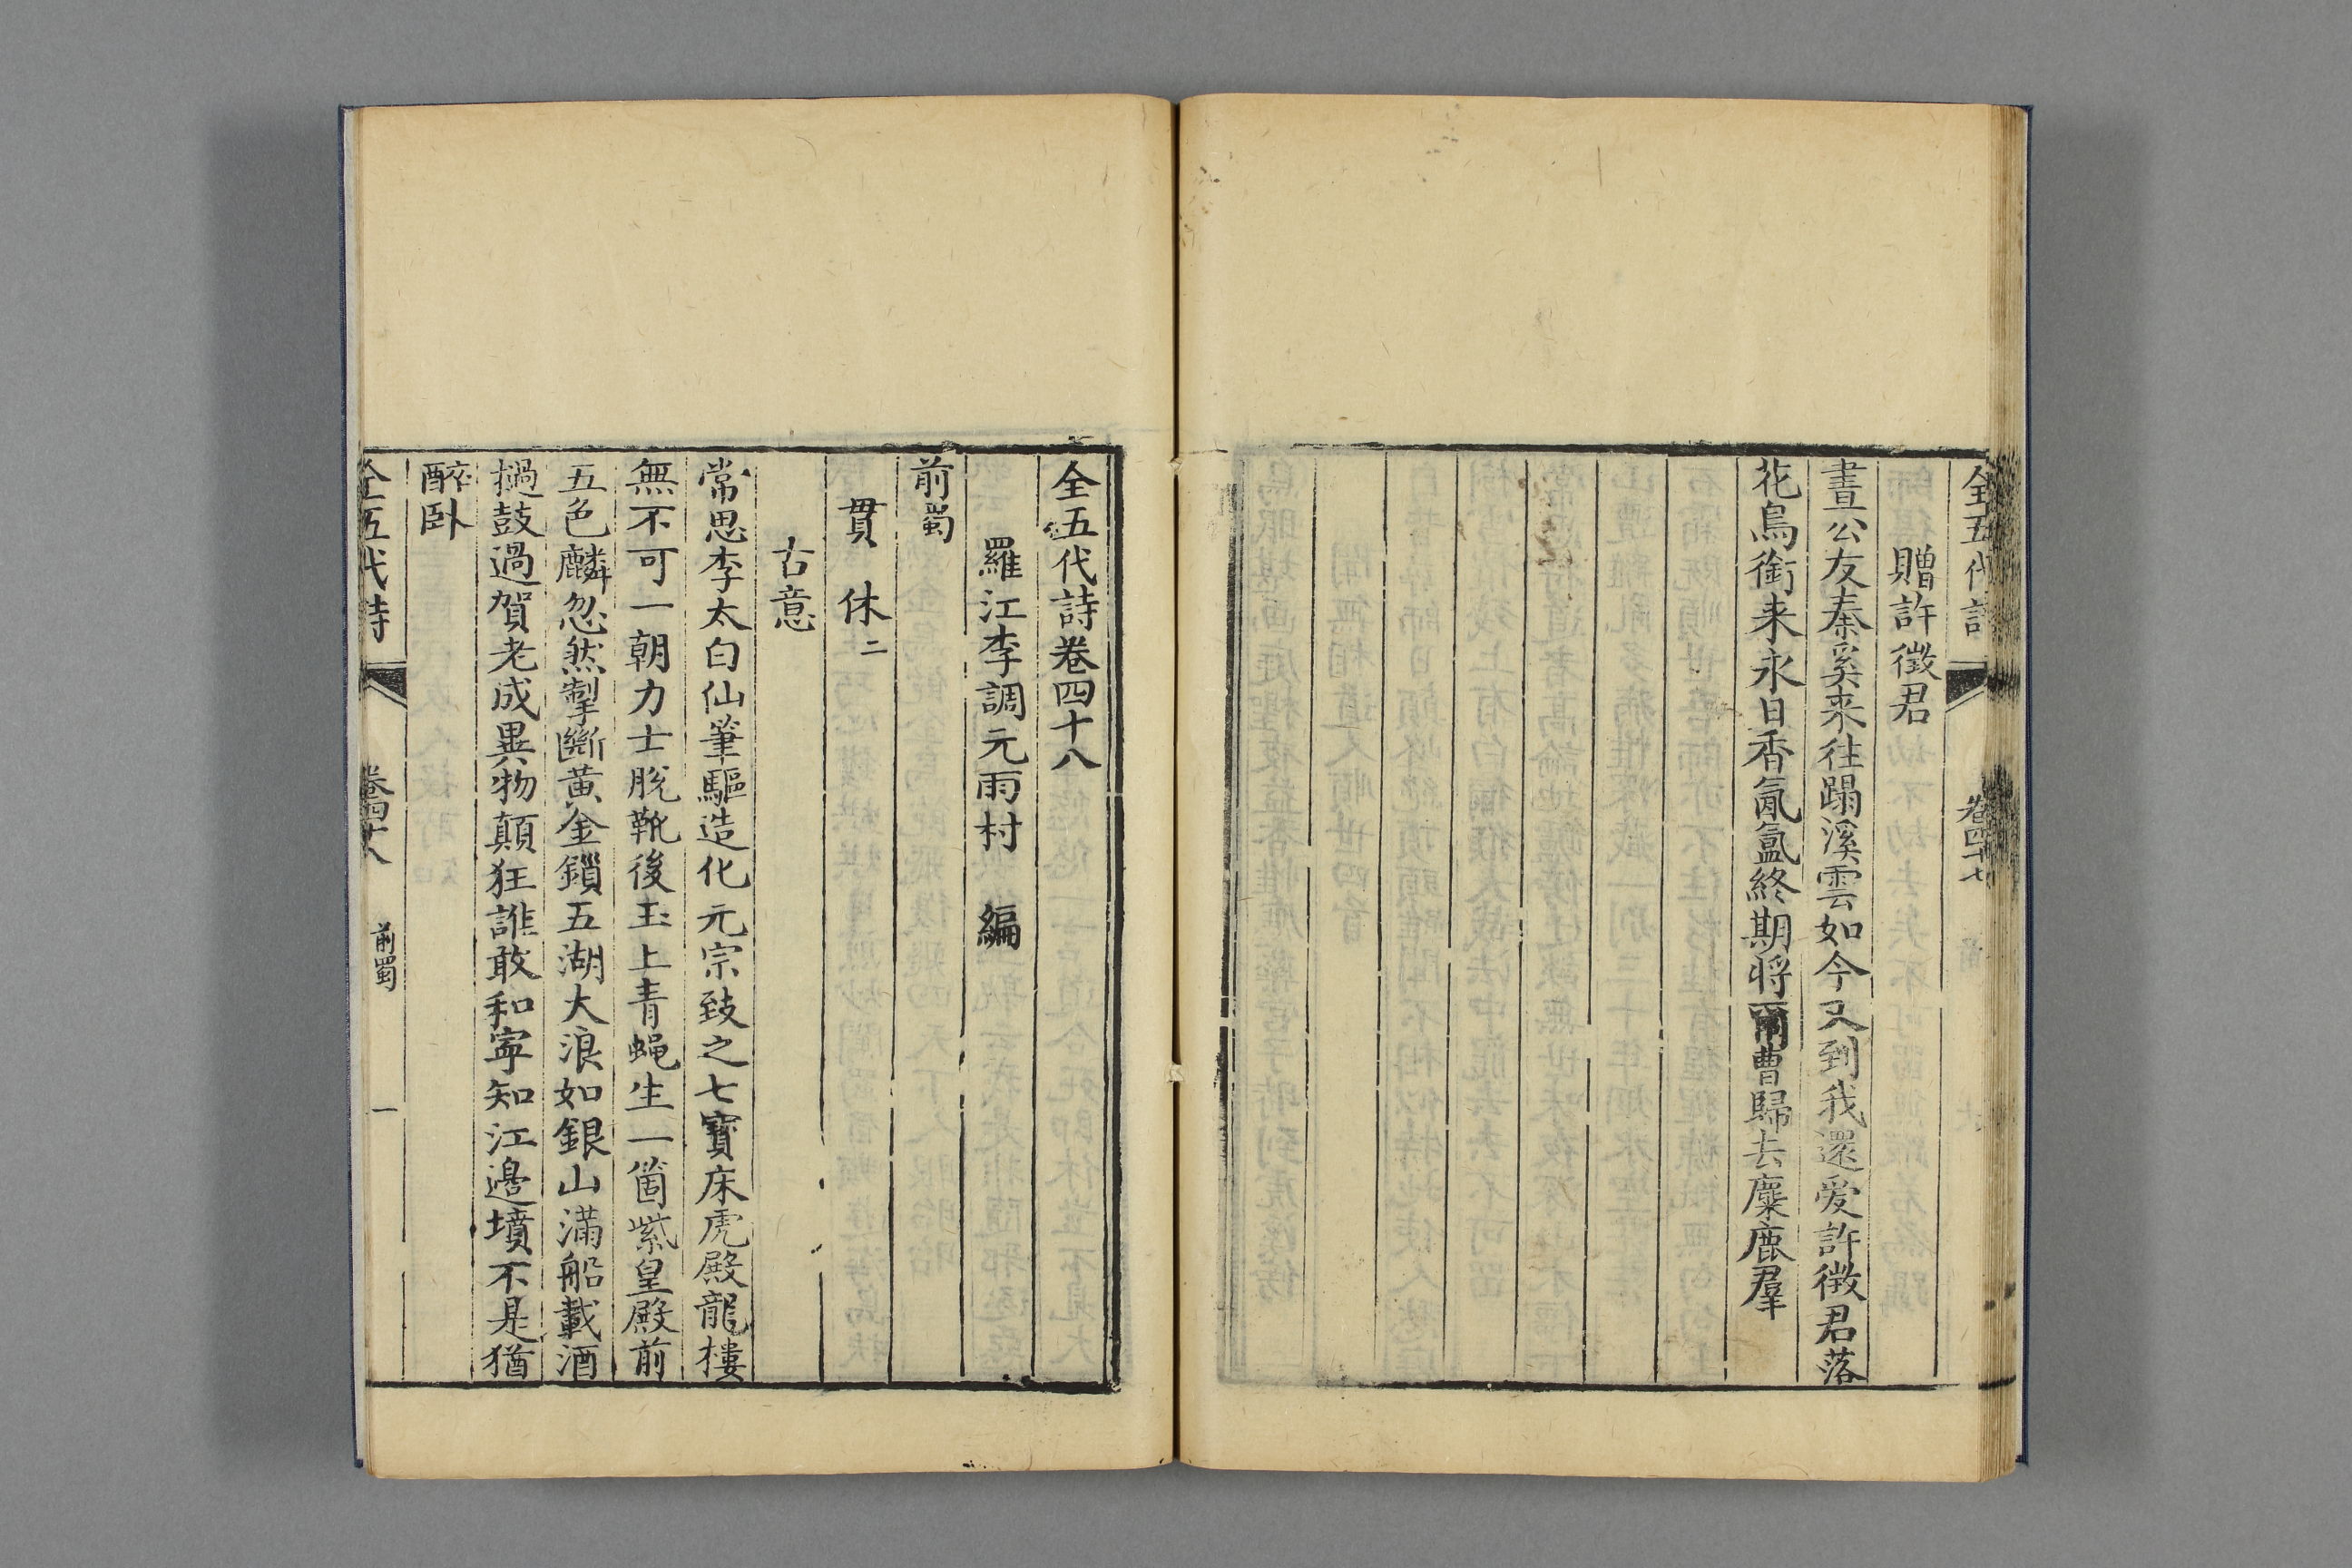 全五代詩 卷四十七
贈許徵君
晝公友秦奚来往蹋溪雲如今又到我還爱許徴君落
花鳥銜来永日香氤氳終期将爾曹歸去麋鹿羣
全五代詩卷四十八
羅江李調元雨村 編
前蜀
貫 休 二
古意
常思李太白仙筆驅造化元宗致之七寶床虎殿龍樓
無不可一朝力士脫靴後玉上青蝇生一箇紫皇殿前
五色麟忽然掣斷黄金鎖五湖大浪如銀山滿船載酒
撾鼓過賀老成異物顛狂誰敢和寧知江邊墳不是猶
醉卧
全五代詩 卷四十八 前蜀 一